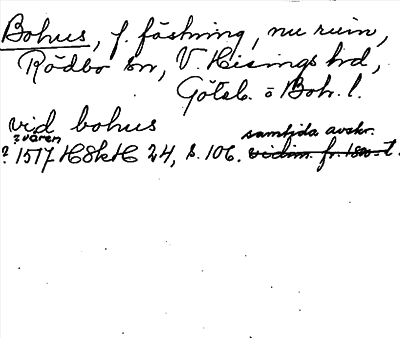 Bohus, f. fästning, nu ruin,
Rödbo sn, V. Hisings hd,
Göteb. o Boh. l.
vid bohus
? våren samtida avskr.
? 1517 HSkH 24, s. 106. vidim. fr.